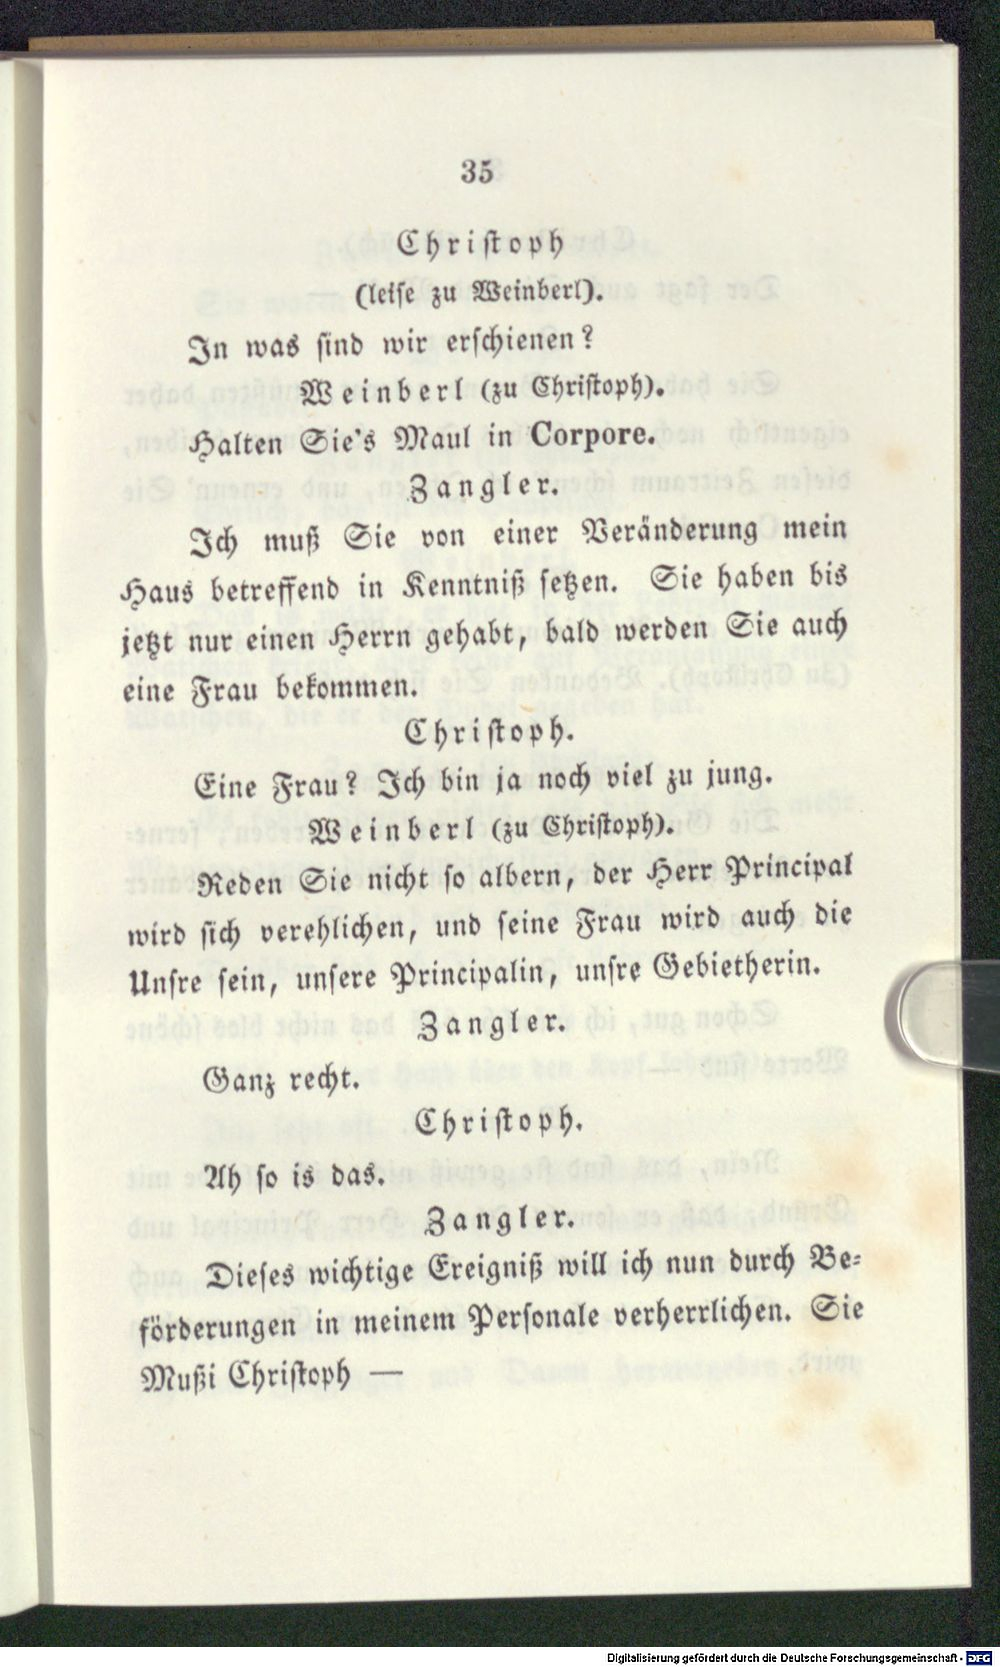 35
Christoph
(leise zu Weinberl).
In was sind wir erschienen?
Weinberl (zu Christoph).
Halten Sie's Maul in Corpore.
Zangler.
Ich muß Sie von einer Veränderung mein
Haus betreffend in Kenntniß setzen. Sie haben bis
jetzt nur einen Herrn gehabt, bald werden Sie auch
eine Frau bekommen.
Christoph.
Eine Frau? Ich bin ja noch viel zu jung.
Weinberl (zu Christoph).
Reden Sie nicht so albern, der Herr Principal
wird sich verehlichen, und seine Frau wird auch die
Unsre sein, unsere Principalin, unsre Gebietherin.
Zangler.
Ganz recht.
Christoph.
Ah so is das.
Zangler.
Dieses wichtige Ereigniß will ich nun durch Be-
förderungen in meinem Personale verherrlichen. Sie
Mußi Christoph —
Digitalisierung gefördert durch die Deutsche Forschungsgemeinschaft - DFG